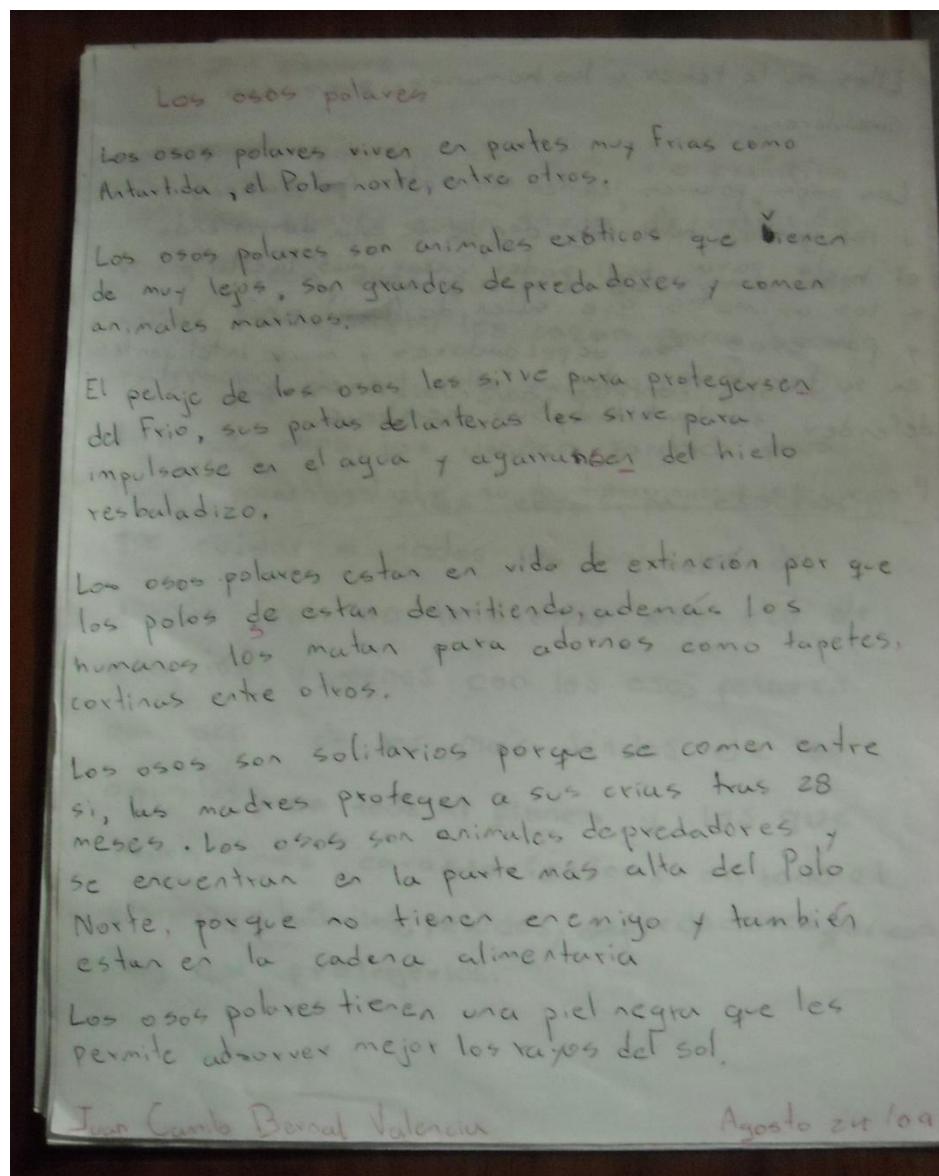 Los osos polares
Los osos polares viven en partes muy frias como
Antartida, el Polo norte, entre otros.
Los osos polares son animales exóticos que vienen
de muy lejos, son grandes depredadores y comen
animales marinos.
El pelaje de los osos les sirve para protegersen
del frio, sus patas delanteras les sirve para
impulsarse en el agua y agarrarsen del hielo
resbaladizo.
Los osos polares estan en vida de extinción por que
los polos se estan derritiendo, además los
humanos los matan para adornos como tapetes,
cortinas entre otros.
Los osos son solitarios porque se comen entre
si, las madres protegen a sus crias tras 28
meses. Los osos son animales depredadores y
se encuentran en la parte más alta del Polo
Norte, porque no tienen enemigo y también
estan en la cadena alimentaria
Los osos polares tienen una piel negra que les
permite adsorver mejor los rayos del sol.
Juan Camilo Bernal Valencia Agosto 24/09